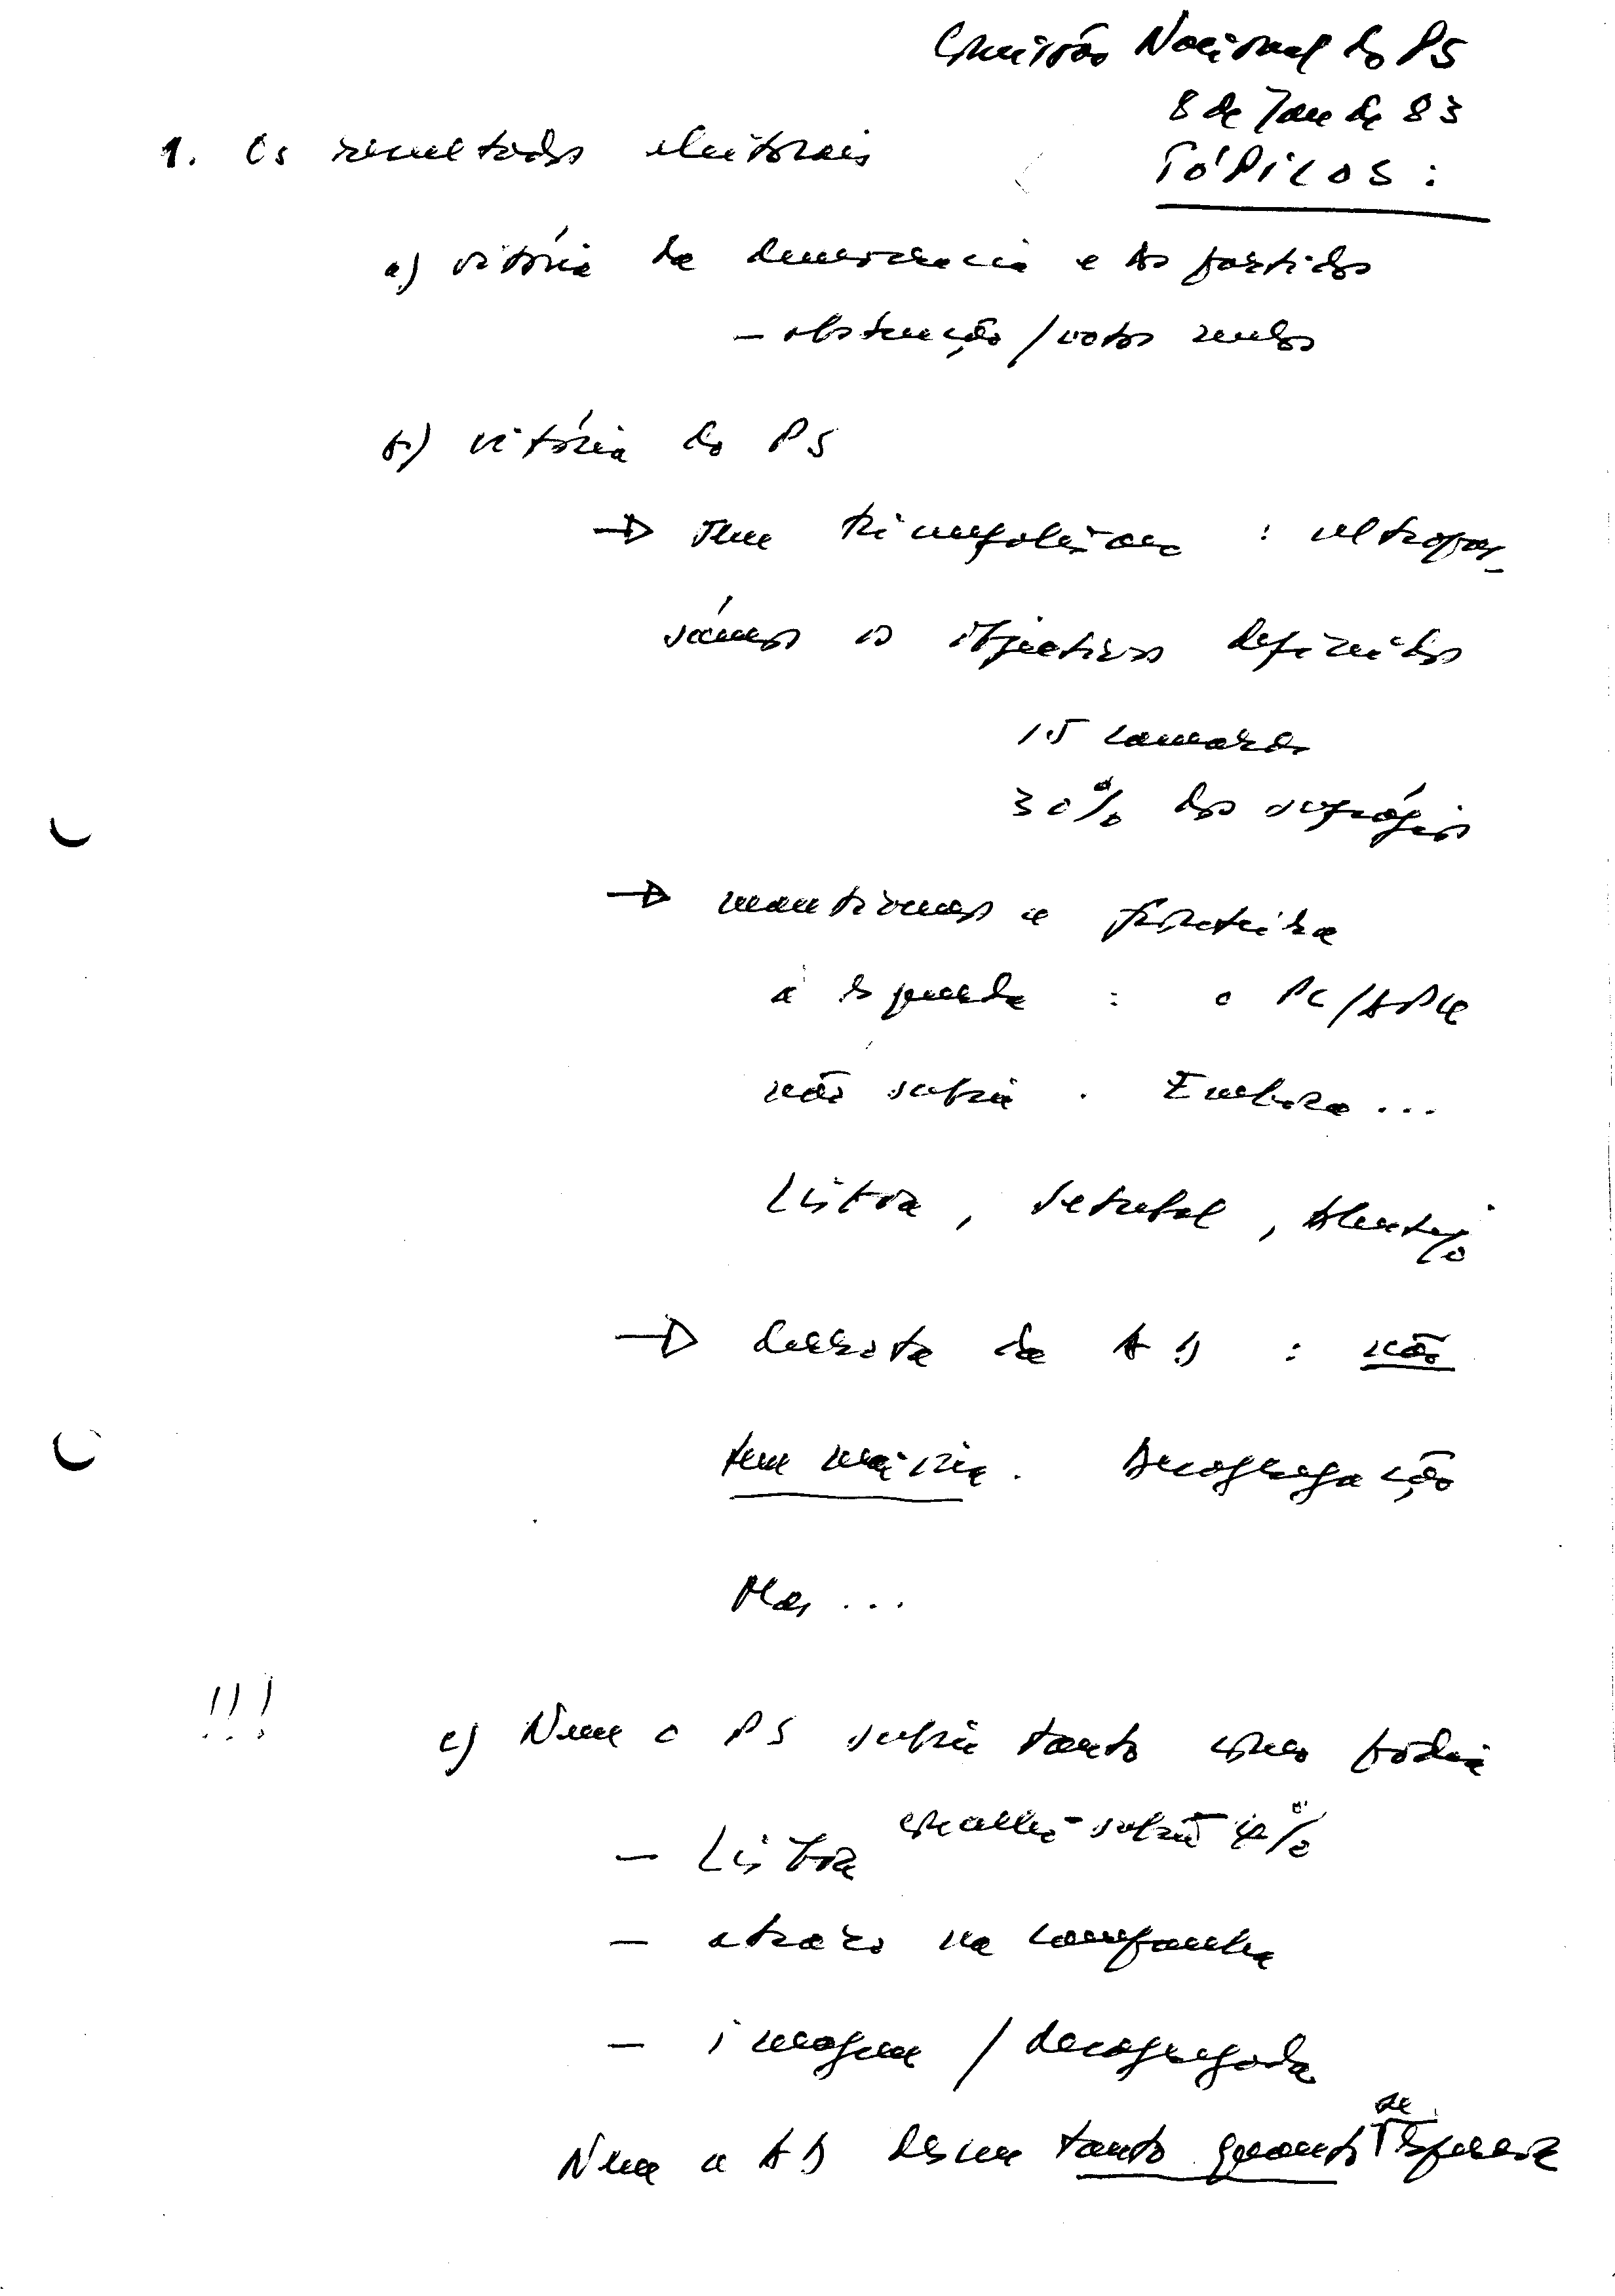 Comissão Nacional do PS
8 de Jan de 83
TÓPICOS:
1. Os resultados eleitorais
a) vitória da democracia e dos partidos
- abstenção / votos nulos
b) vitória do PS
→ sem triunfalismo : ultrapas-
sámos os objectivos definidos
15 camaras
30% dos sufrágios
→ mantivemos a fronteira
à esquerda : o PC/APU
não subiu. Embora...
Lisboa, Setubal, Alentejo
→ derrota da AD : não
tem maioria. Desagregação
Mas ...
!!!
c) Nem o PS subiu tanto como podia
- Lisboa subiu 4%
- atrazo na campanha
- imagem / desagregada
Nem a AD desceu tanto quanto se espera